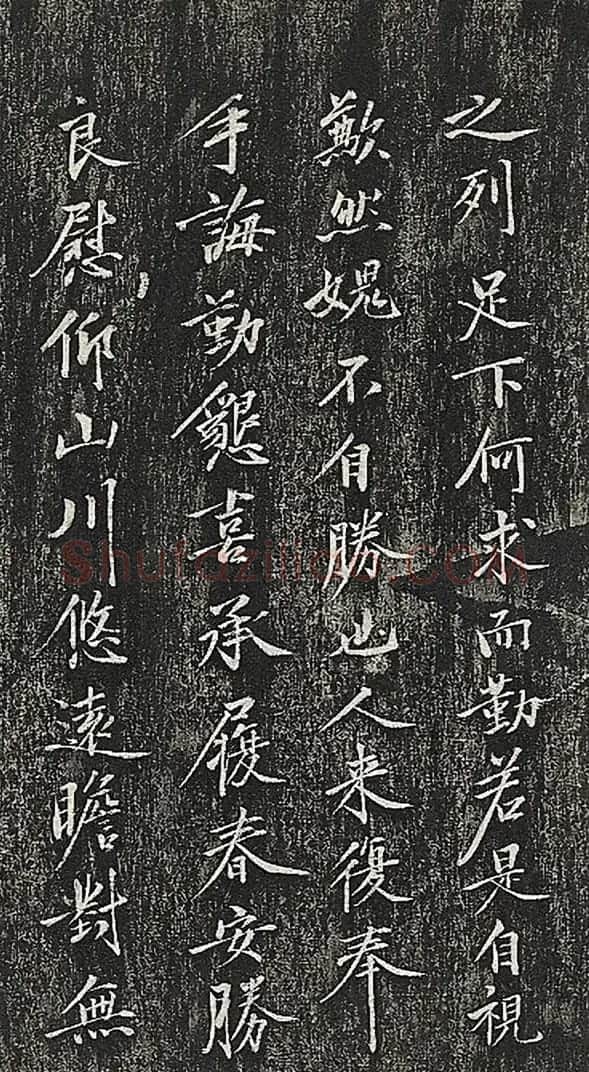 之列足下何求而勤若是自視
歉然媿不自勝也人来復奉
手誨勤懇喜承履春安勝
良慰仰山川悠遠瞻對無
shufaziliao.com